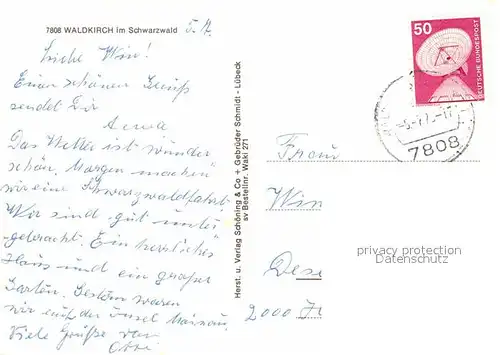 7808 WALDKIRCH im Schwarzwald
Liebe Win!
Einen schönen Gruß
sendet Dir
Das Wetter ist wunder
schön. Morgen machen
wir eine Schwarzwaldfahrt.
Wir sind gut unter
gebracht. Ein herrliches
Haus und ein großer
Garten. Gestern waren
wir auf der Insel Mainau
Viele Grüße von
Herst. u. Verlag Schöning & Co + Gebrüder Schmidt - Lübeck
av Bestellnr. Waki 271
50
DEUTSCHE BUNDESPOST
7808
Frau
Win
privacy protection
Datenschutz
2000